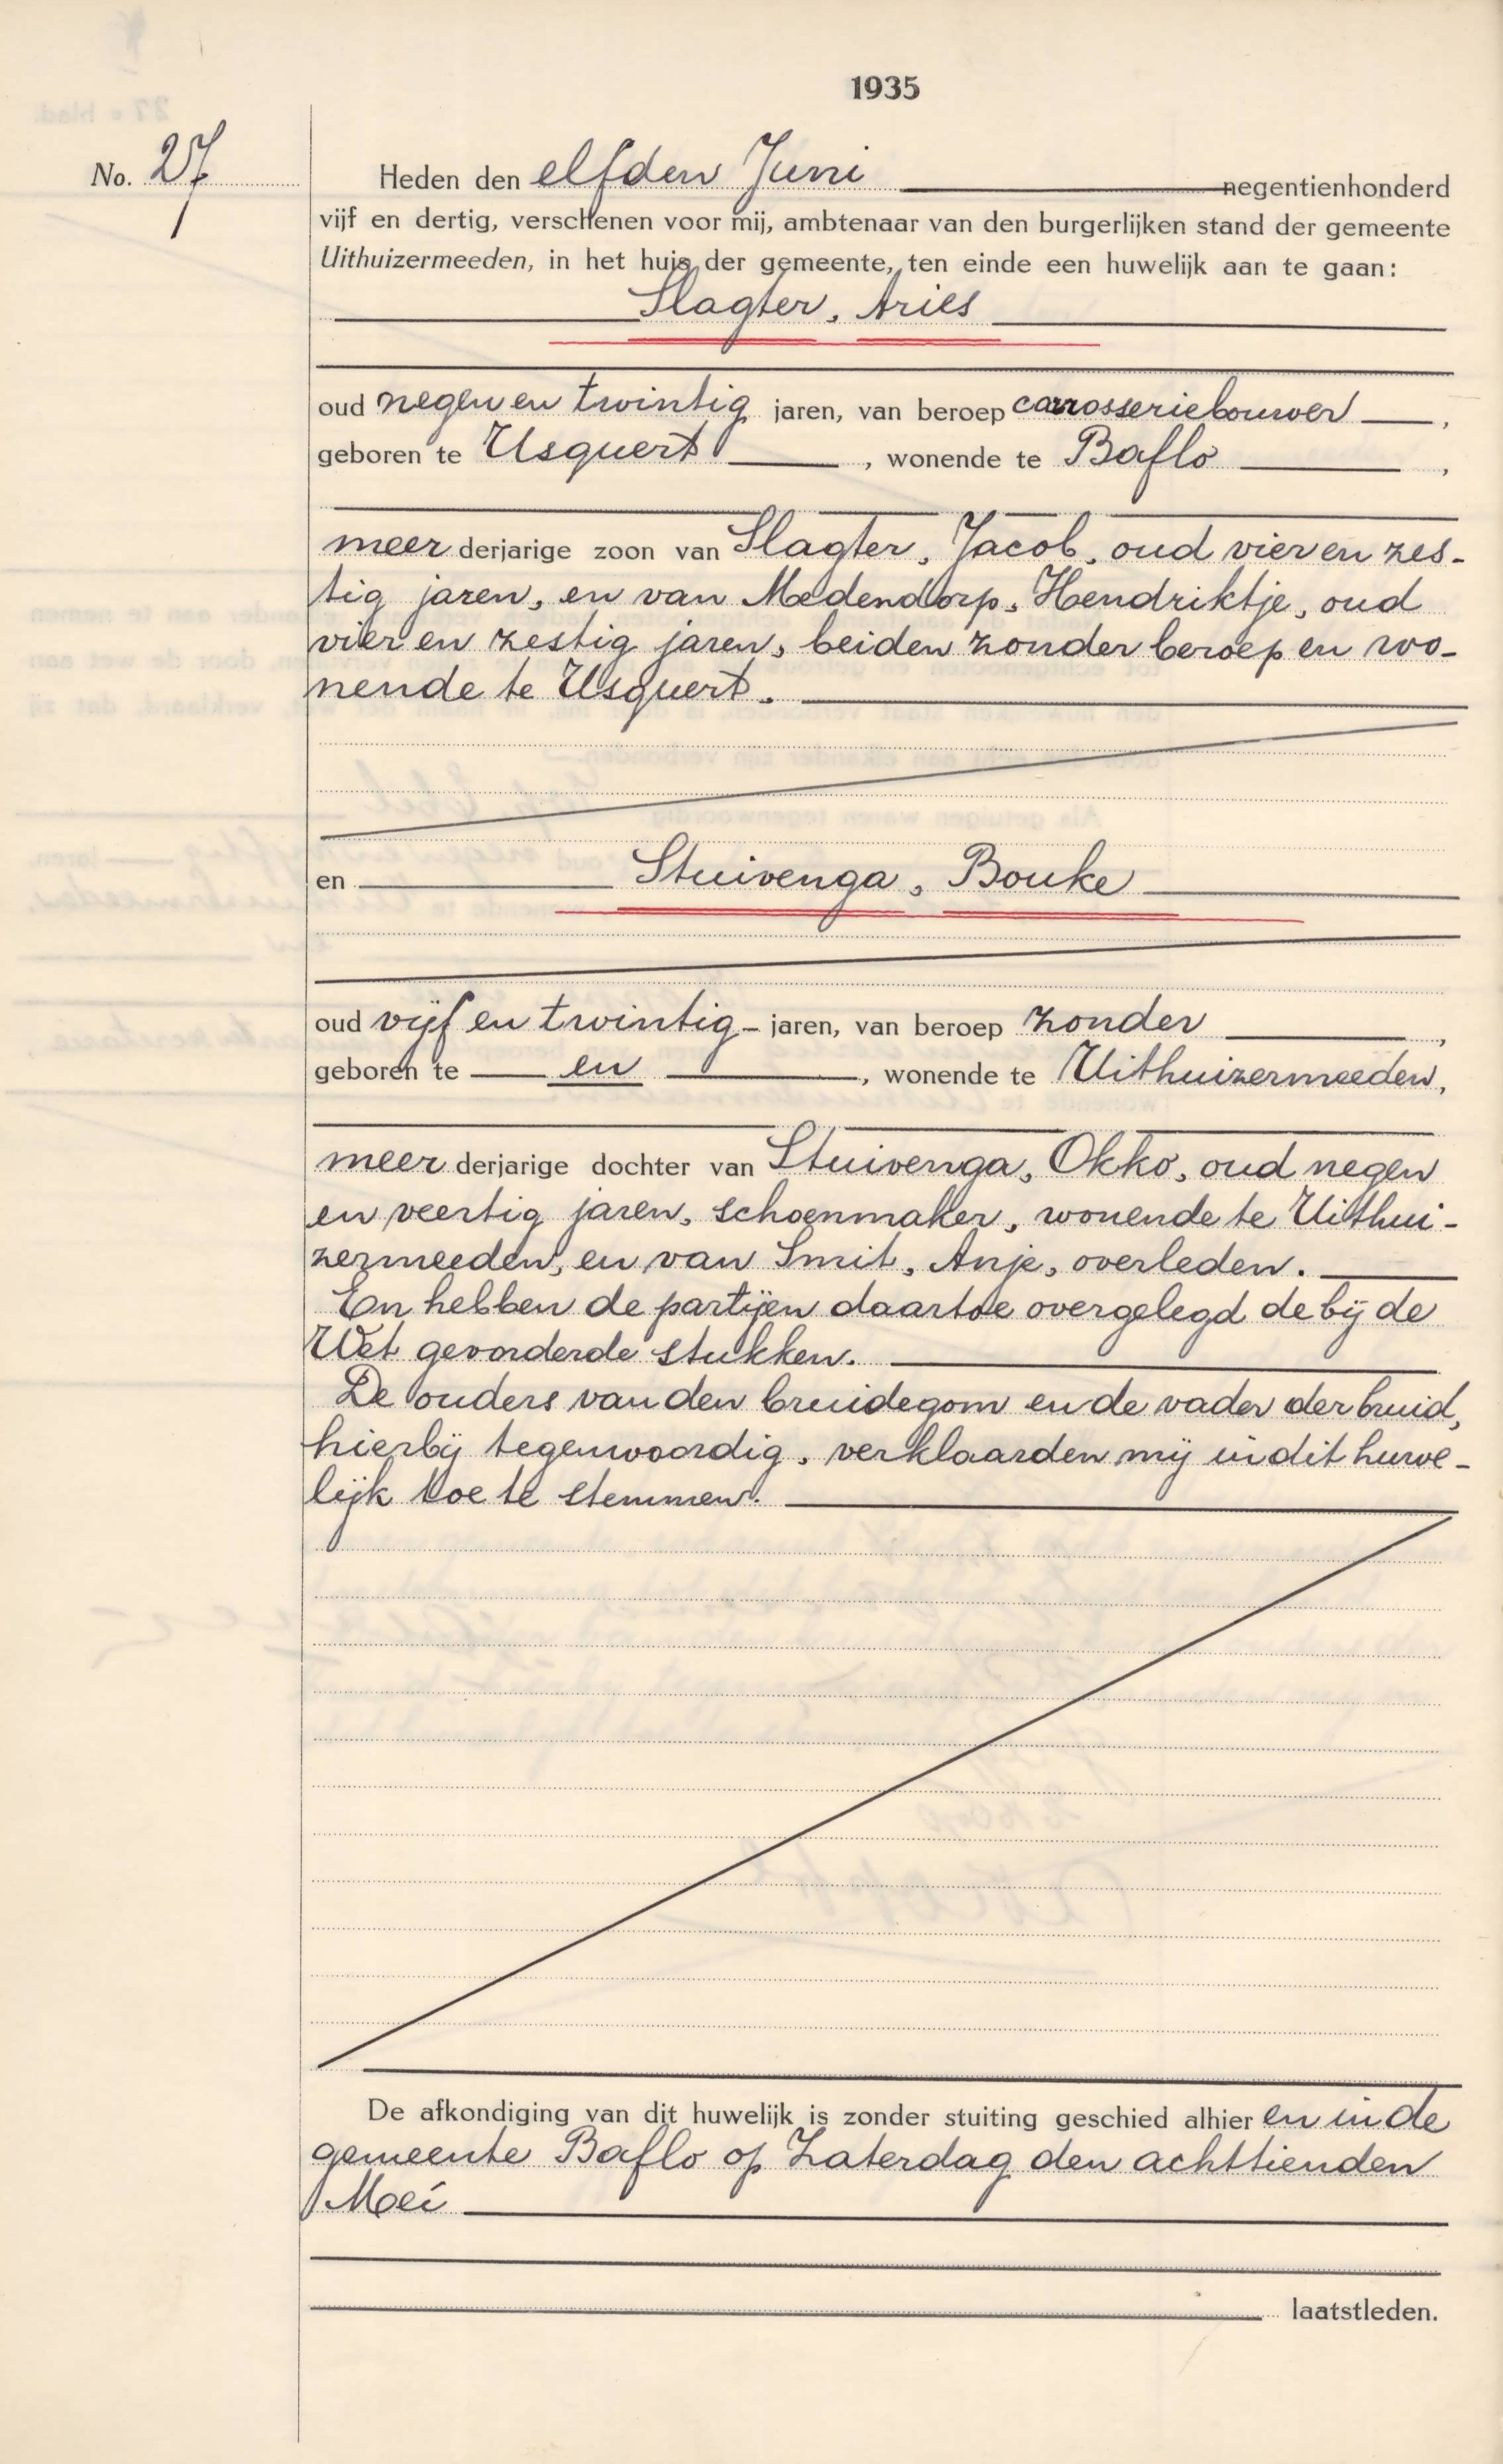 1935
No. 27
Heden den elfden Juni negentienhonderd
vijf en dertig, verschenen voor mij, ambtenaar van den burgerlijken stand der gemeente
Uithuizermeeden, in het huis der gemeente, ten einde een huwelijk aan te gaan:
Slagter, Aries
oud negen en twintig jaren, van beroep carrosseriebouwer,
geboren te Usquert, wonende te Baflo,
meer derjarige zoon van Slagter, Jacob, oud vier en zes-
tig jaren, en van Medendorp, Hendriktje, oud
vier en zestig jaren, beiden zonder beroep en wo-
nende te Usquert.
en Stuivenga, Bouke
oud vijf en twintig - jaren, van beroep zonder,
geboren te en, wonende te Uithuizermeeden,
meer derjarige dochter van Stuivenga, Okko, oud negen
en veertig jaren, schoenmaker, wonende te Uithui-
zermeeden, en van Smit, Anje, overleden.
En hebben de partijen daartoe overgelegd de bij de
Wet gevorderde stukken.
De ouders van den bruidegom en de vader der bruid,
hierbij tegenwoordig, verklaarden mij in dit huwe-
lijk toe te stemmen.
De afkondiging van dit huwelijk is zonder stuiting geschied alhier en in de
gemeente Baflo op Zaterdag den achttienden
Mei
laatstleden.